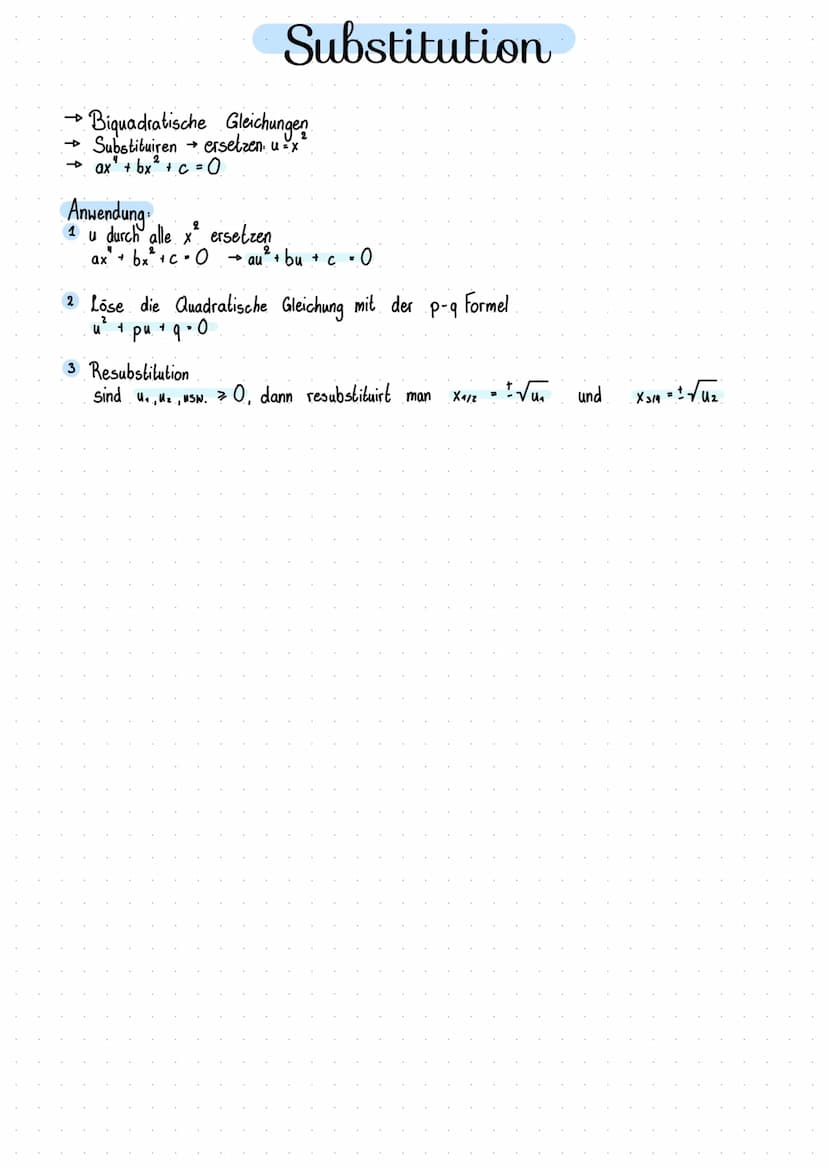 Substitution
→ Biquadratische Gleichungen
→ Substituiren → ersetzen: u = x²
→ ax⁴ + bx² + c = 0
Anwendung:
1 u durch alle x² ersetzen
ax⁴ + bx² + c = 0 → au² + bu + c = 0
2 Löse die Quadratische Gleichung mit der p-q Formel
u² + pu + q = 0
3 Resubstitution
sind u₁, u₂, usw. ⩾ 0, dann resubstituirt man x₁/₂ = ±√u₁ und x₃/₄ = ±√u₂